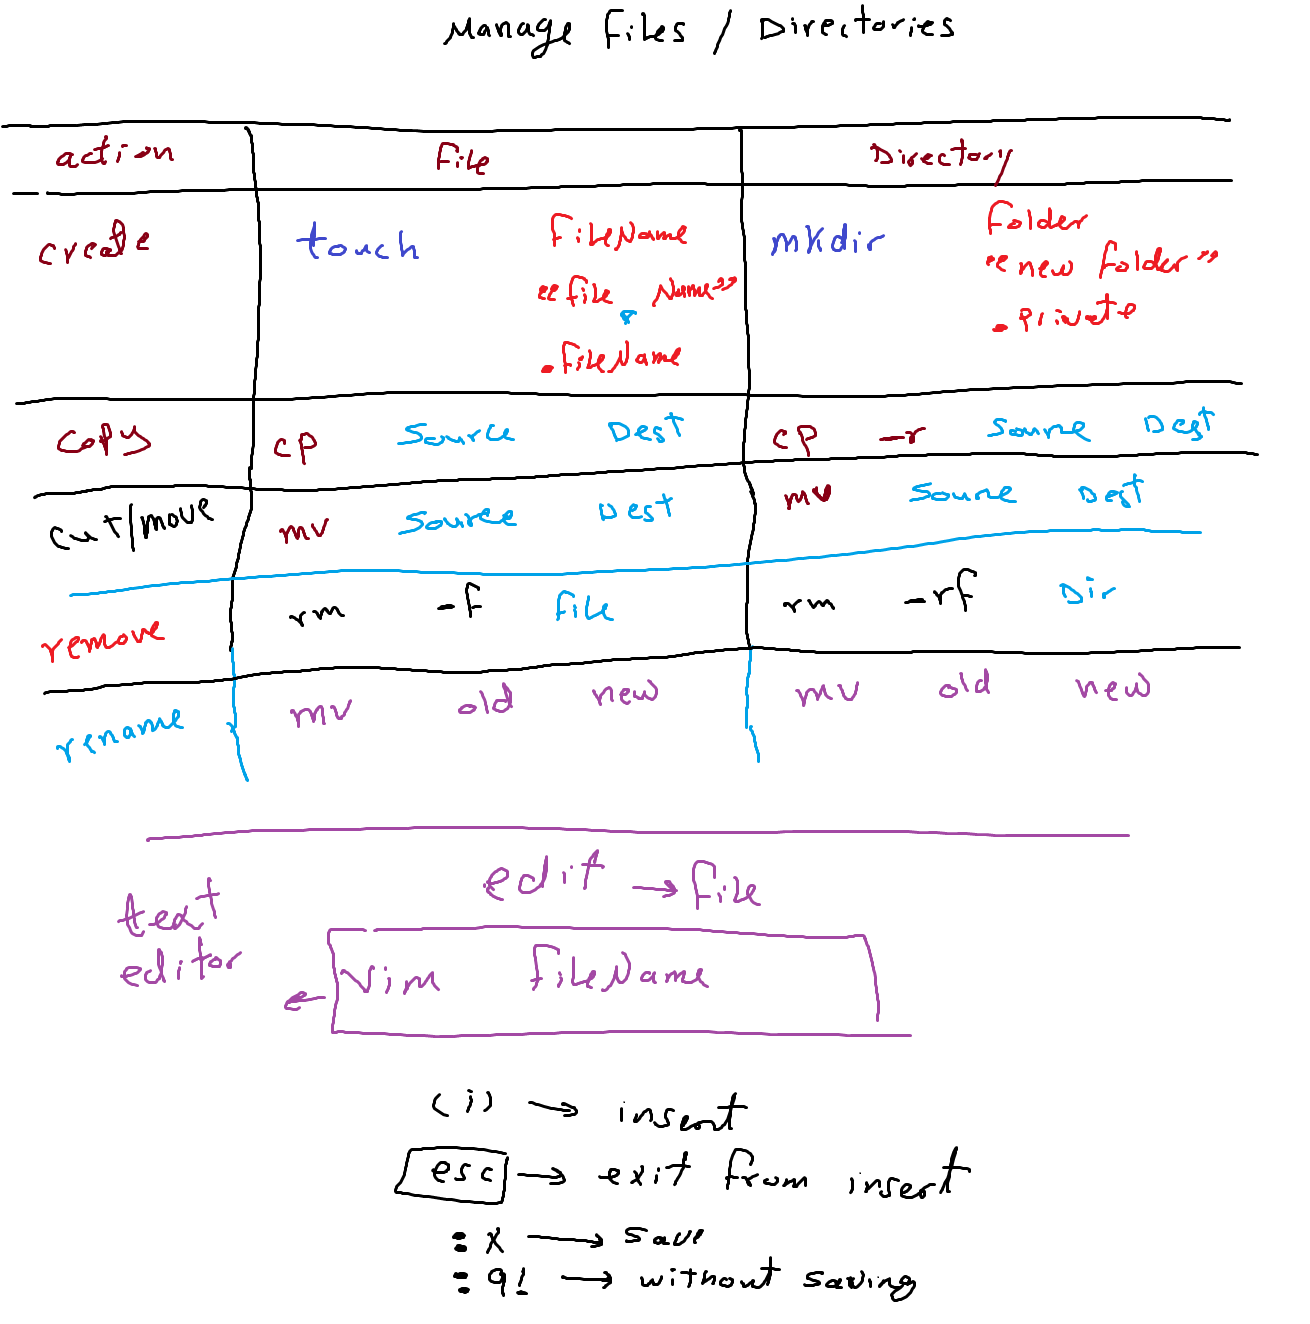 Manage Files / Directories
action File Directory
create touch FileName mkdir Folder
"file Name" "new folder"
.FileName .Private
Copy cp Source Dest cp -r Source Dest
cut/move mv Source Dest mv Source Dest
remove rm -f File rm -rf Dir
rename mv old new mv old new
edit → File
text
editor
← Vim FileName
(i) → insert
esc → exit from insert
:x → save
:q! → without saving